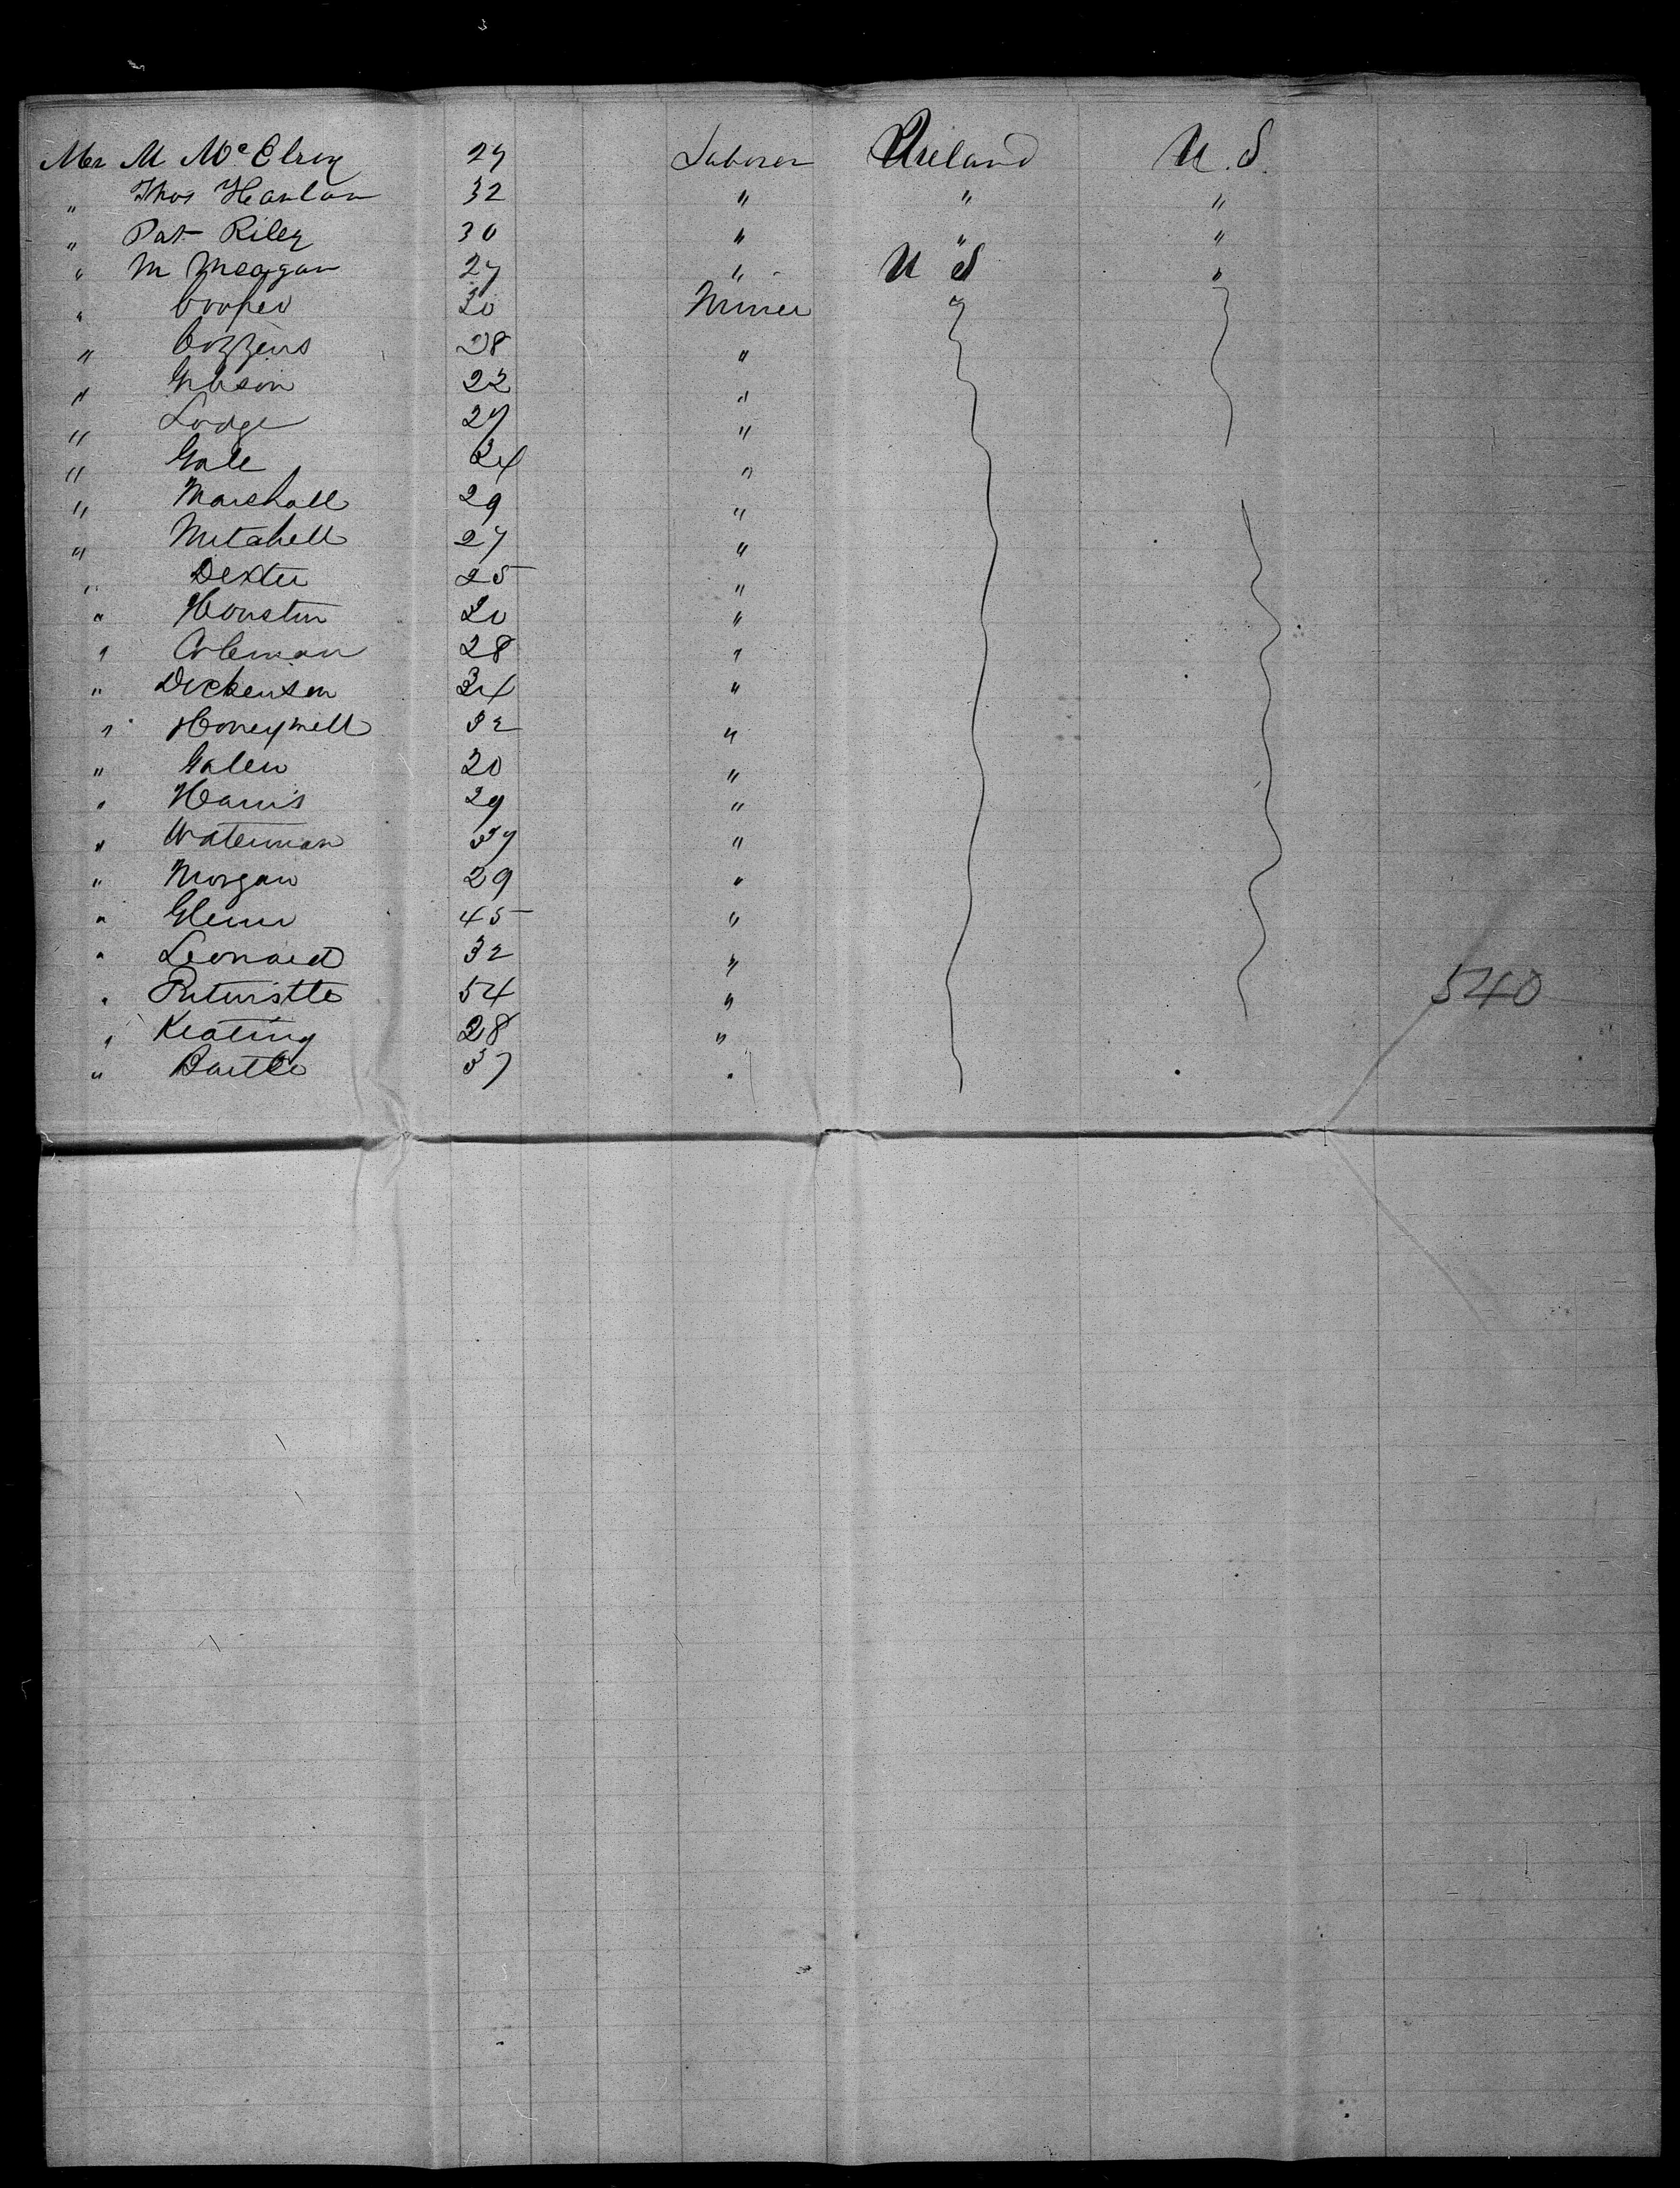 Mr M McElroy 29 Laborer Ireland U.S.
" Thos Hanlan 32 " " "
" Pat Riley 30 " " "
" M Meagan 27 " U S "
" Cooper 30 Miner
" Cozzens 28 "
" Gibson 22 "
" Lodge 27 "
" Gale 24 "
" Marshall 29 "
" Mitchell 27 "
" Dexter 25 "
" Houston 20 "
" Coleman 28 "
" Dickenson 34 "
" Honeywell 32 "
" Galen 20 "
" Harris 29 "
" Waterman 37 "
" Morgan 29 "
" Glenn 45 "
" Leonard 32 "
" 54 "
540
" Keating 28 "
" Bartle 37 "